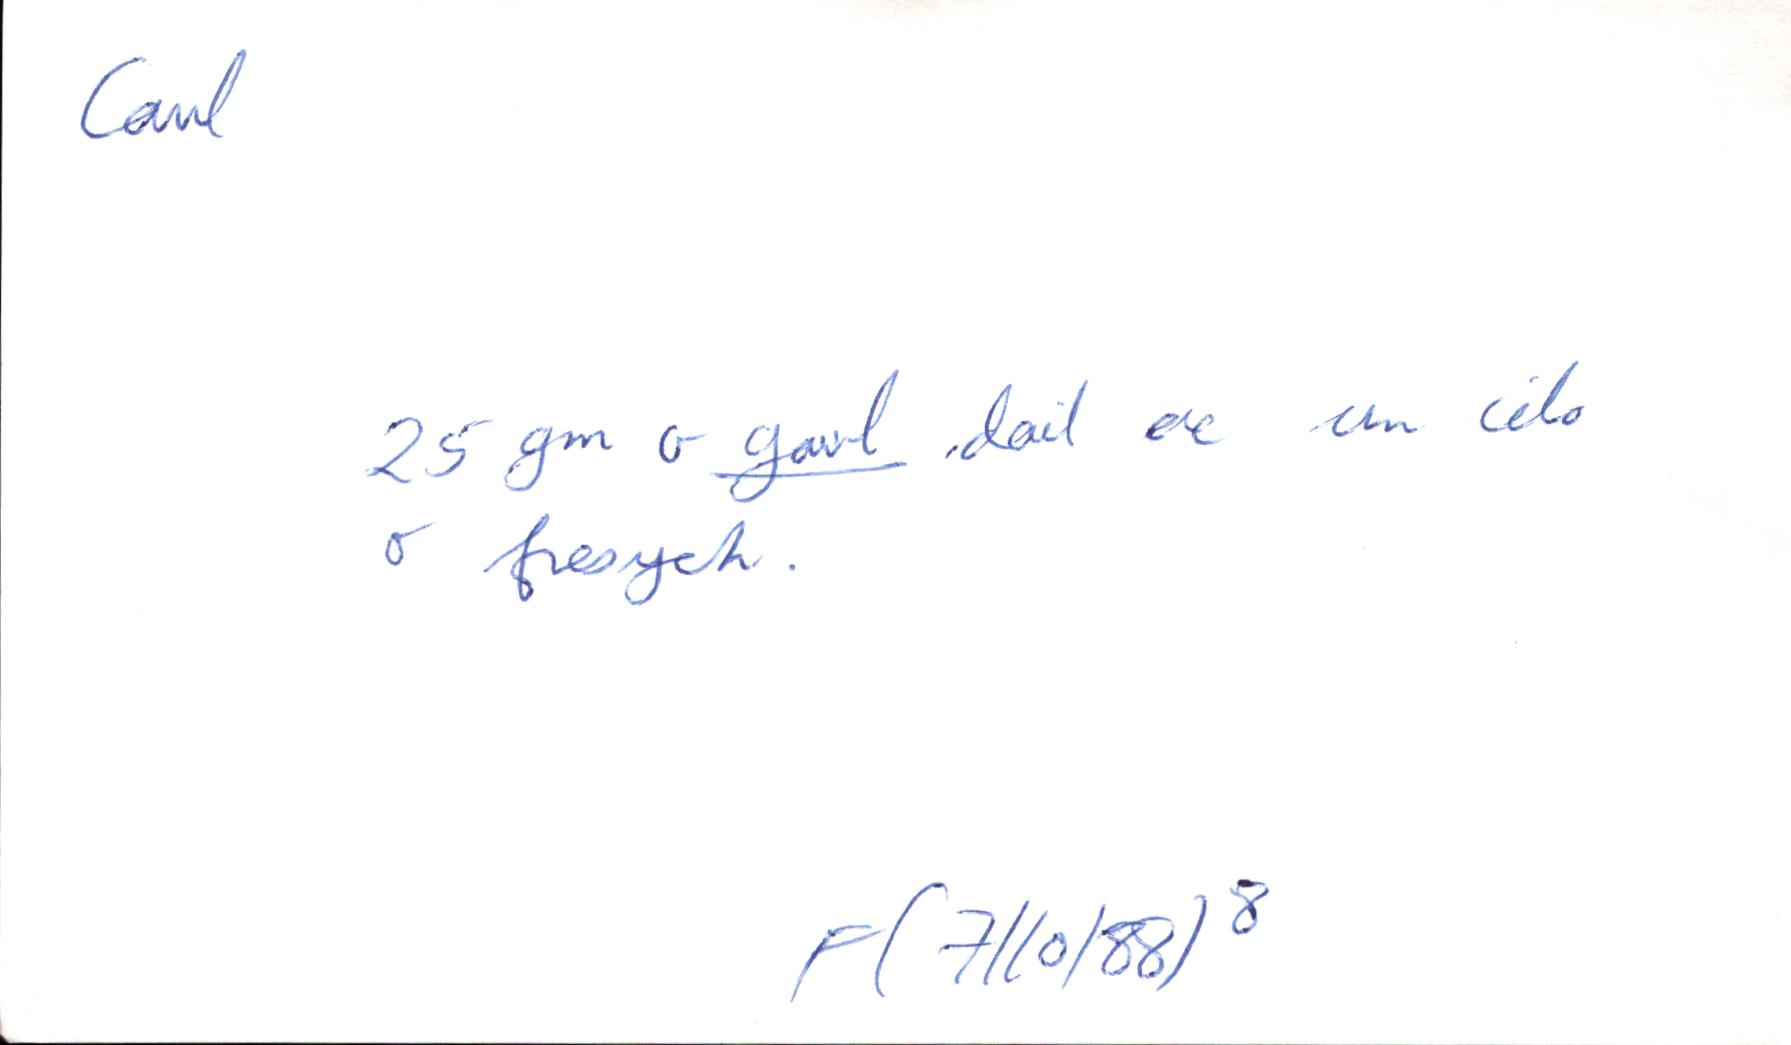 Cawl
25 gm o gawl dail ac un cilo
o fresych.
F(7/10/88)8